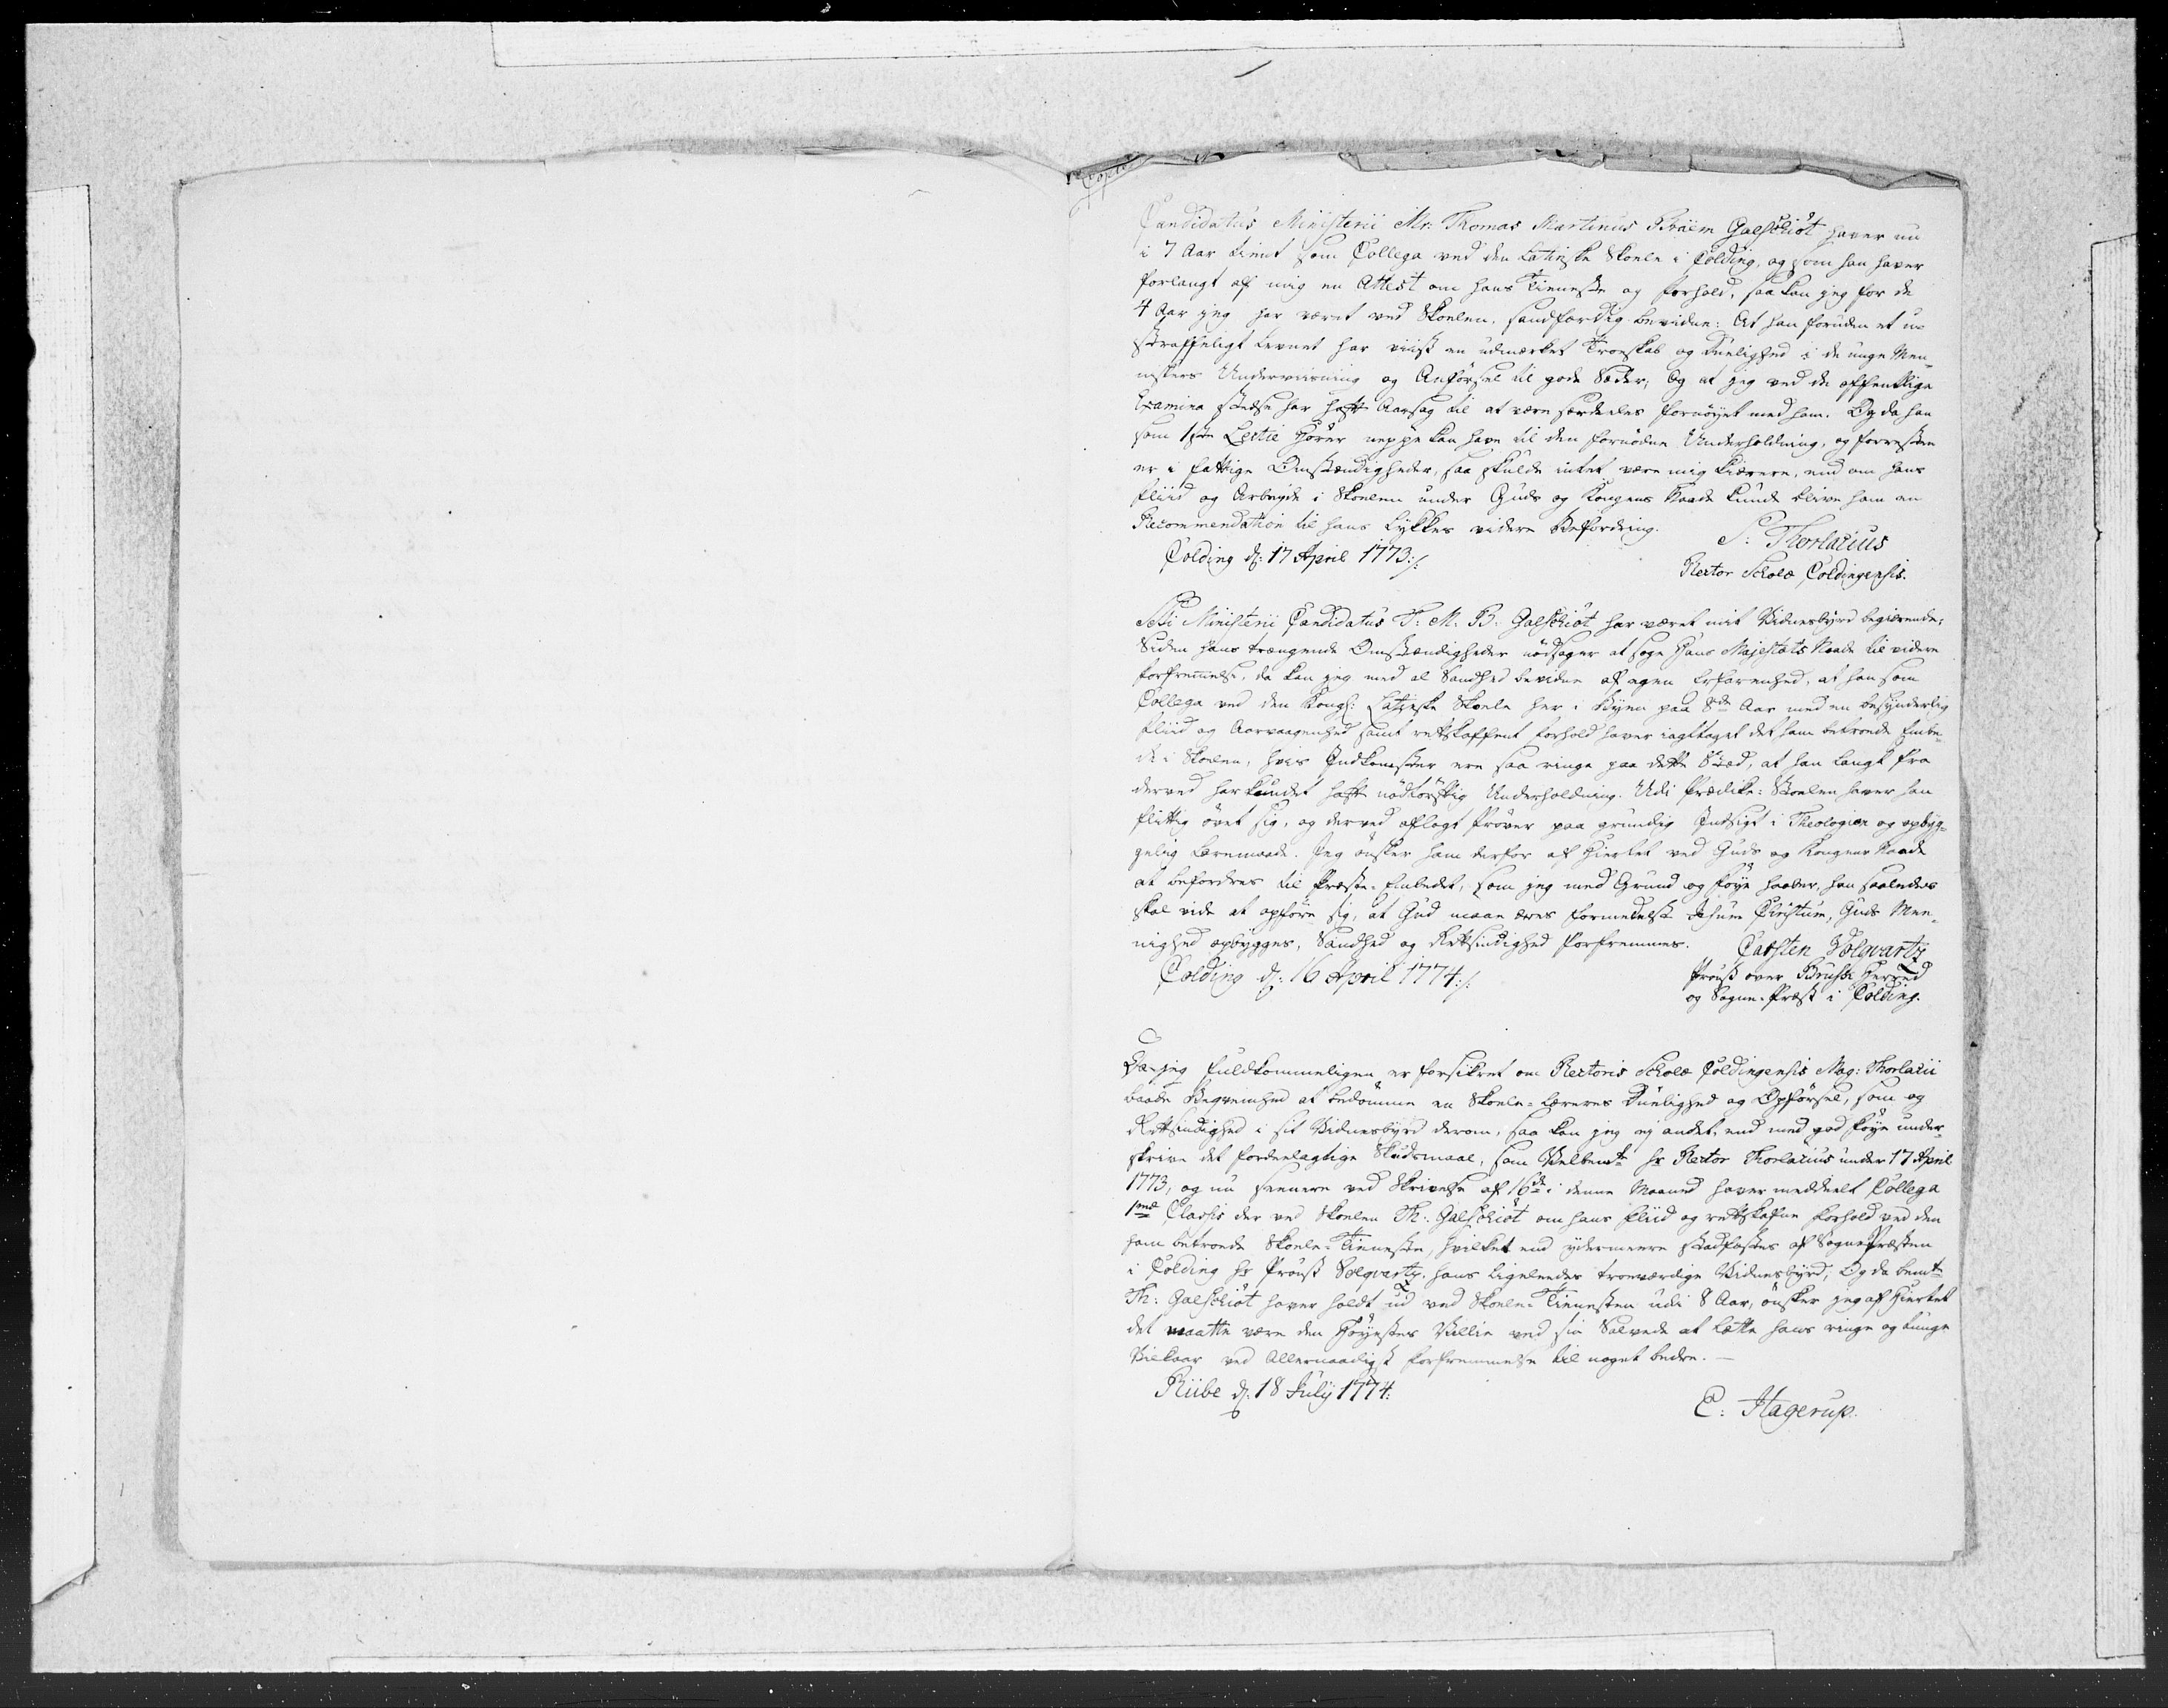 Copie
Candidatus Ministerii Mr: Thomas Martinus Braëm Galschiöt haver nu
i 7 Aar tient som Collega ved den Latinske Skoele i Colding, og som han haver
forlangt af mig en Attest om hans Tieneste og Forhold, saa kan jeg for de
4 Aar jeg har været ved Skoelen, sandfærdig bevidne: At han foruden et u-
straffeligt Levnet har viist en udmærket Troeskab og Duelighed i de unge Men-
niskers Underviisning og Anførsel til gode Sæder; Og at jeg ved de offentlige
Examina stedse har haft Aarsag til at være særdeeles fornøyet med ham. Og da han
som 1ste Lectie Hører neppe kan have til den fornødne Underholdning, og forresten
er i fattige Omstændigheder, saa skulde intet være mig kiærere, end om hans
Fliid og Arbeyde i Skoelen under Guds og Kongens Naade kunde blive ham en
Recommendation til hans Lykkes videre Befordring.
S: Thorlacius
Colding d: 17 April 1773:/:
Rector Scholæ Coldingensis.
Scti Ministerii Candidatus T: M: B: Galschiöt har været mit Vidnesbyrd begiærende;
Siden hans trængende Omstændigheder nødsager at søge Hans Majestæts Naade til videre
Forfremmelse, da kan jeg med al Sandhed bevidne af egen Erfarenhed, at han som
Collega ved den Kongl: Latinske Skoele her i Byen paa 8de Aar med en besynderlig
Fliid og Aarvaagenhed samt retskaffent Forhold haver iagttaget det ham betroede Embe-
de i Skoelen, hvis Indkomster ere saa ringe paa dette Stæd, at han langt fra
derved har kundet haft nødtørftig Underholdning. Udi Prædike-Skoelen haver han
flittig øvet sig, og derved aflagt Prøver paa grundig Indsigt i Theologien og opbyg-
gelig Læremaade. Jeg ønsker ham derfor af Hiertet ved Guds og Kongens Naade
at befordres til Præste-Embedet, som jeg med Grund og Føye haaber, han saaledes
skal vide at opføre sig, at Gud maae æres formedelst Jesum Christum, Guds Mee-
nighed opbygges, Sandhed og Retsindighed forfremmes.
Carsten Volqvartz
Colding d: 16 April 1774:/:
Proust over Brusk Herred
og Sogne-Præst i Colding.
Da jeg fuldkommeligen er forsikret om Rectoris Scholæ Coldingensis Mag: Thorlacii
baade Beqvemhed at bedømme en Skoele-Læreres Duelighed og Opførsel, som og
Retsindighed i sit Vidnesbyrd derom, saa kan jeg ej andet, end med god Føye under-
skrive det fordeelagtige Skudsmaal, som Velbemte Hr Rector Thorlacius under 17 April
1773, og nu seenere ved Skrivelse af 16de i denne Maaned haver meddeelt Collega
1mæ Classis der ved Skoelen Th: Galschiöt om hans Fliid og retskafne Forhold ved den
ham betroede Skoele-Tieneste, hvilket end ydermeere stadfæstes af SognePræsten
i Colding Hr Proust Volqvartz, hans ligeleedes troværdige Vidnesbyrd; Og da bemte
Th: Galschiöt haver holdt ud ved Skoele-Tienesten udi 8 Aar, ønsker jeg af Hiertet
det maatte være den Høyestes Villie ved sin Salvede at lette hans ringe og tunge
Vilkaar ved Allernaadigst Forfremmelse til noget bedre.
Riibe d: 18 July 1774:
E: Hagerup.